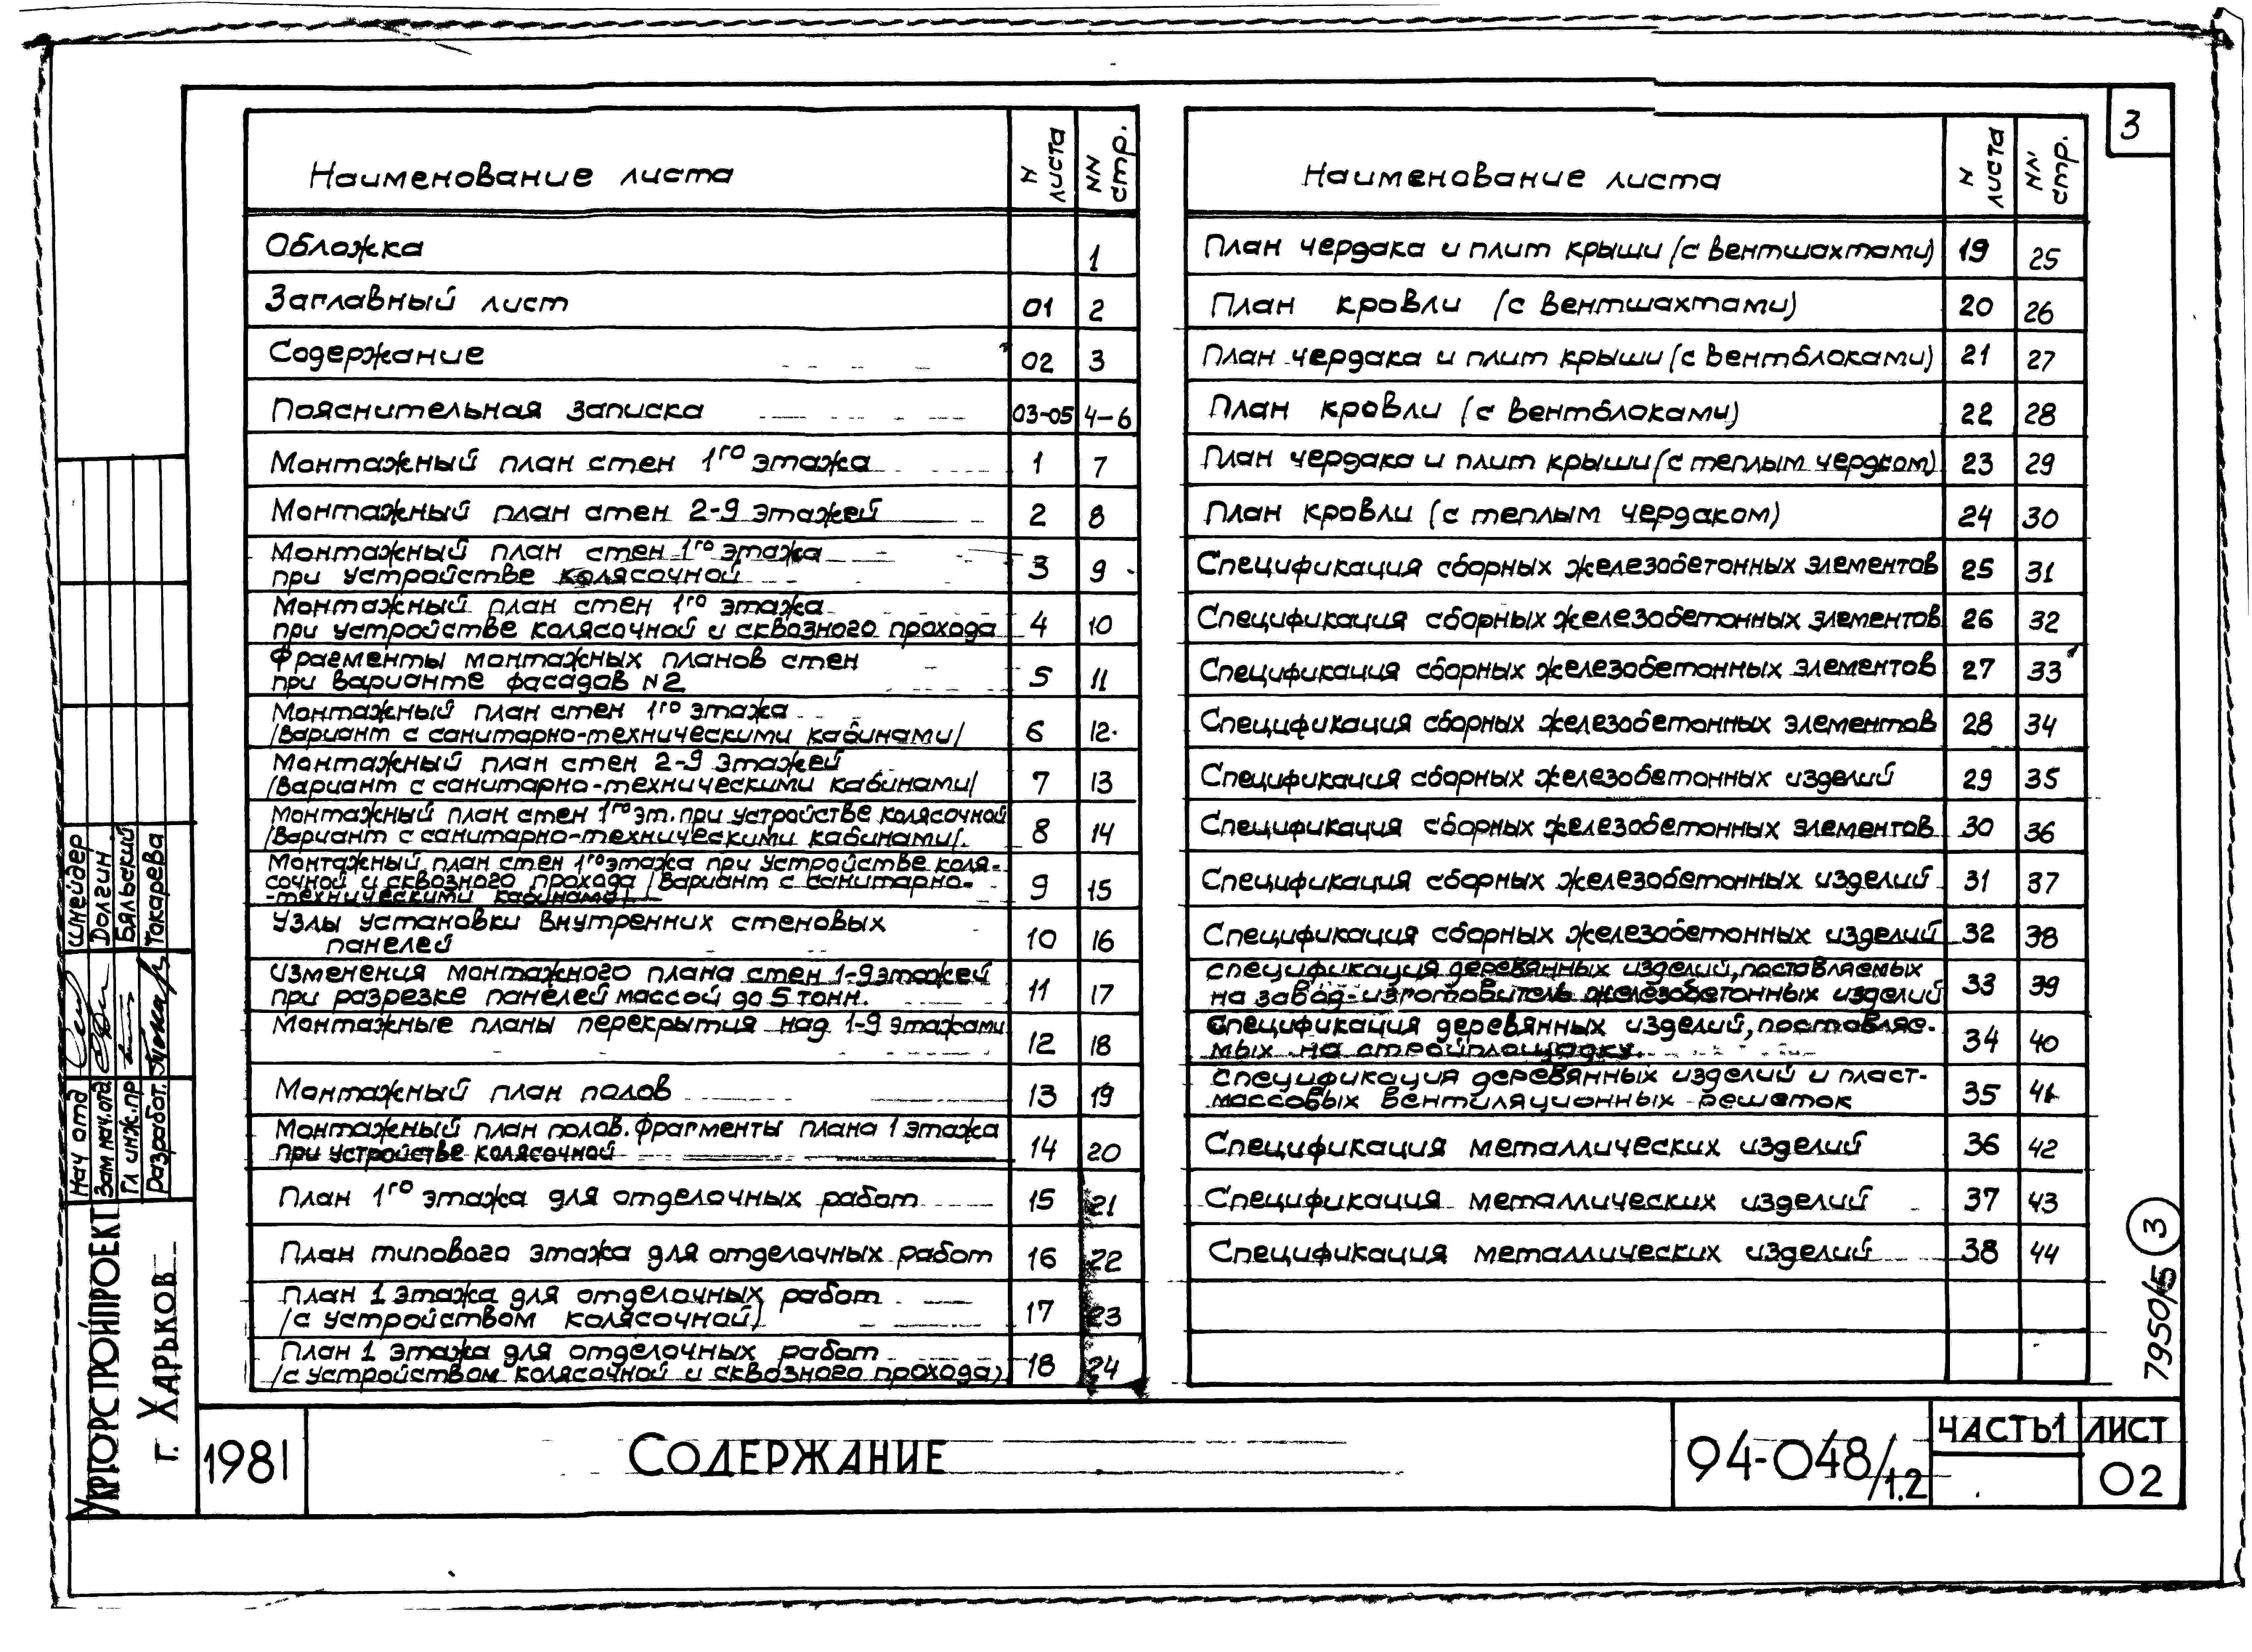 3
Наименование листа
N листа
NN стр.
Обложка 1
Заглавный лист 01 2
Содержание 02 3
Пояснительная записка 03-05 4-6
Монтажный план стен 1го этажа 1 7
Монтажный план стен 2-9 этажей 2 8
Монтажный план стен 1го этажа
при устройстве колясочной 3 9
Монтажный план стен 1го этажа
при устройстве колясочной и сквозного прохода 4 10
Фрагменты монтажных планов стен
при варианте фасадов N2 5 11
Монтажный план стен 1го этажа
/вариант с санитарно-техническими кабинами/ 6 12
Монтажный план стен 2-9 этажей
/вариант с санитарно-техническими кабинами/ 7 13
Монтажный план стен 1го эт. при устройстве колясочной
/вариант с санитарно-техническими кабинами/. 8 14
Монтажный план стен 1го этажа при устройстве коля-
сочной и сквозного прохода /вариант с санитарно-
-техническими кабинами/ 9 15
Узлы установки внутренних стеновых
панелей 10 16
Изменения монтажного плана стен 1-9 этажей
при разрезке панелей массой до 5 тонн. 11 17
Монтажные планы перекрытия над 1-9 этажами 12 18
Монтажный план полов 13 19
Монтажный план полов. Фрагменты плана 1 этажа
при устройстве колясочной 14 20
План 1го этажа для отделочных работ 15 21
План типового этажа для отделочных работ 16 22
План 1 этажа для отделочных работ
/с устройством колясочной) 17 23
План 1 этажа для отделочных работ
/с устройством колясочной и сквозного прохода) 18 24
Наименование листа
N листа
NN стр.
План чердака и плит крыши (с вентшахтами) 19 25
План кровли (с вентшахтами) 20 26
План чердака и плит крыши (с вентблоками) 21 27
План кровли (с вентблоками) 22 28
План чердака и плит крыши (с теплым чердком) 23 29
План кровли (с теплым чердаком) 24 30
Спецификация сборных железобетонных элементов 25 31
Спецификация сборных железобетонных элементов 26 32
Спецификация сборных железобетонных элементов 27 33
Спецификация сборных железобетонных элементов 28 34
Спецификация сборных железобетонных изделий 29 35
Спецификация сборных железобетонных элементов 30 36
Спецификация сборных железобетонных изделий 31 37
Спецификация сборных железобетонных изделий 32 38
Спецификация деревянных изделий, поставляемых
на завод-изготовитель железобетонных изделий 33 39
Спецификация деревянных изделий, поставляе-
мых на стройплощадку. 34 40
Спецификация деревянных изделий и пласт-
массовых вентиляционных решеток 35 41
Спецификация металлических изделий 36 42
Спецификация металлических изделий 37 43
Спецификация металлических изделий 38 44
Нач отд Шнейдер
Зам нач.отд Долгин
Гл инж. пр Бяльский
Разработ. Токарева
Укргорстройпроект
г. Харьков
1981
Содержание
94-048/1.2
Часть 1
Лист
02
7950/5
3